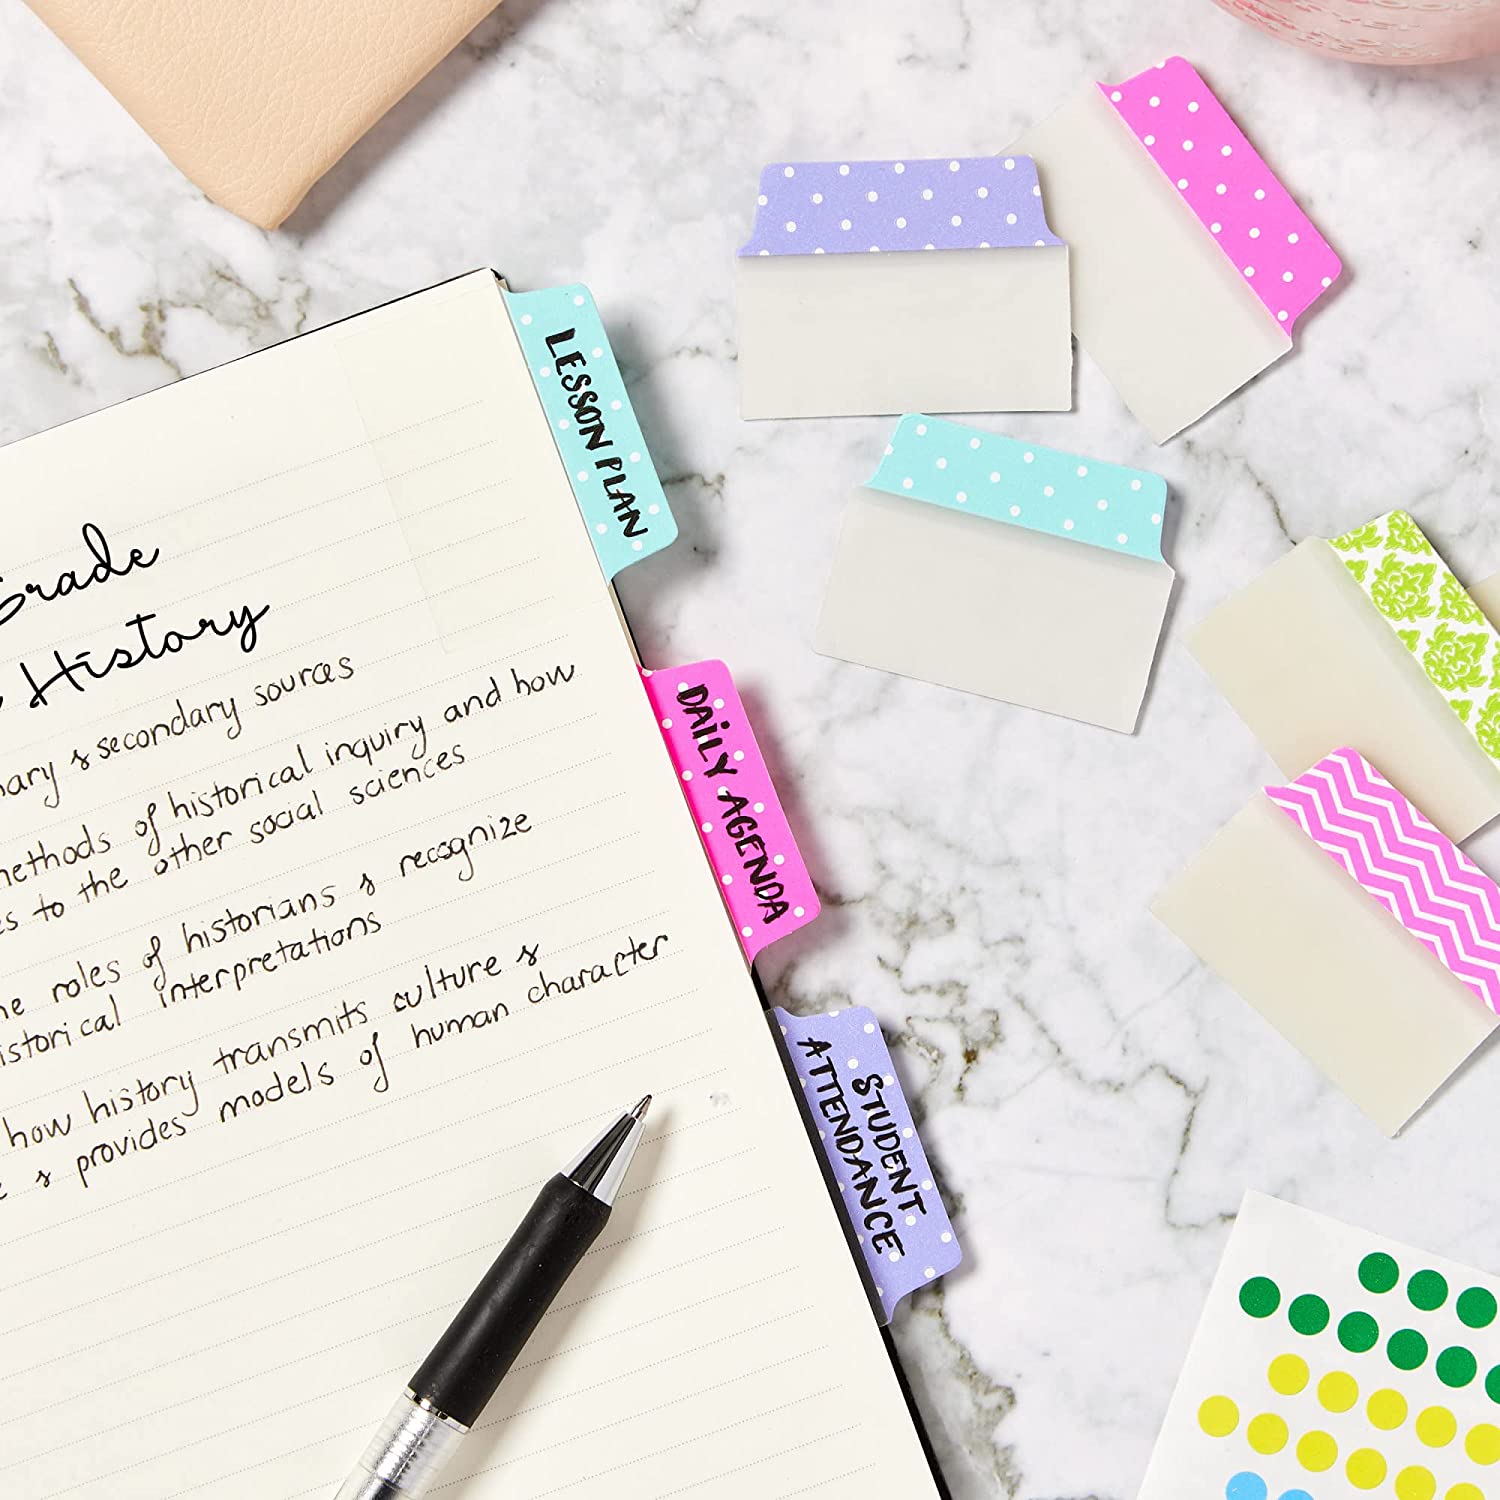 LESSON PLAN
Grade
History
& secondary sources
methods of historical inquiry and how
to the other social sciences
roles of historians & recognize
historical interpretations
how history transmits culture &
& provides models of human character
DAILY AGENDA
STUDENT
ATTENDANCE